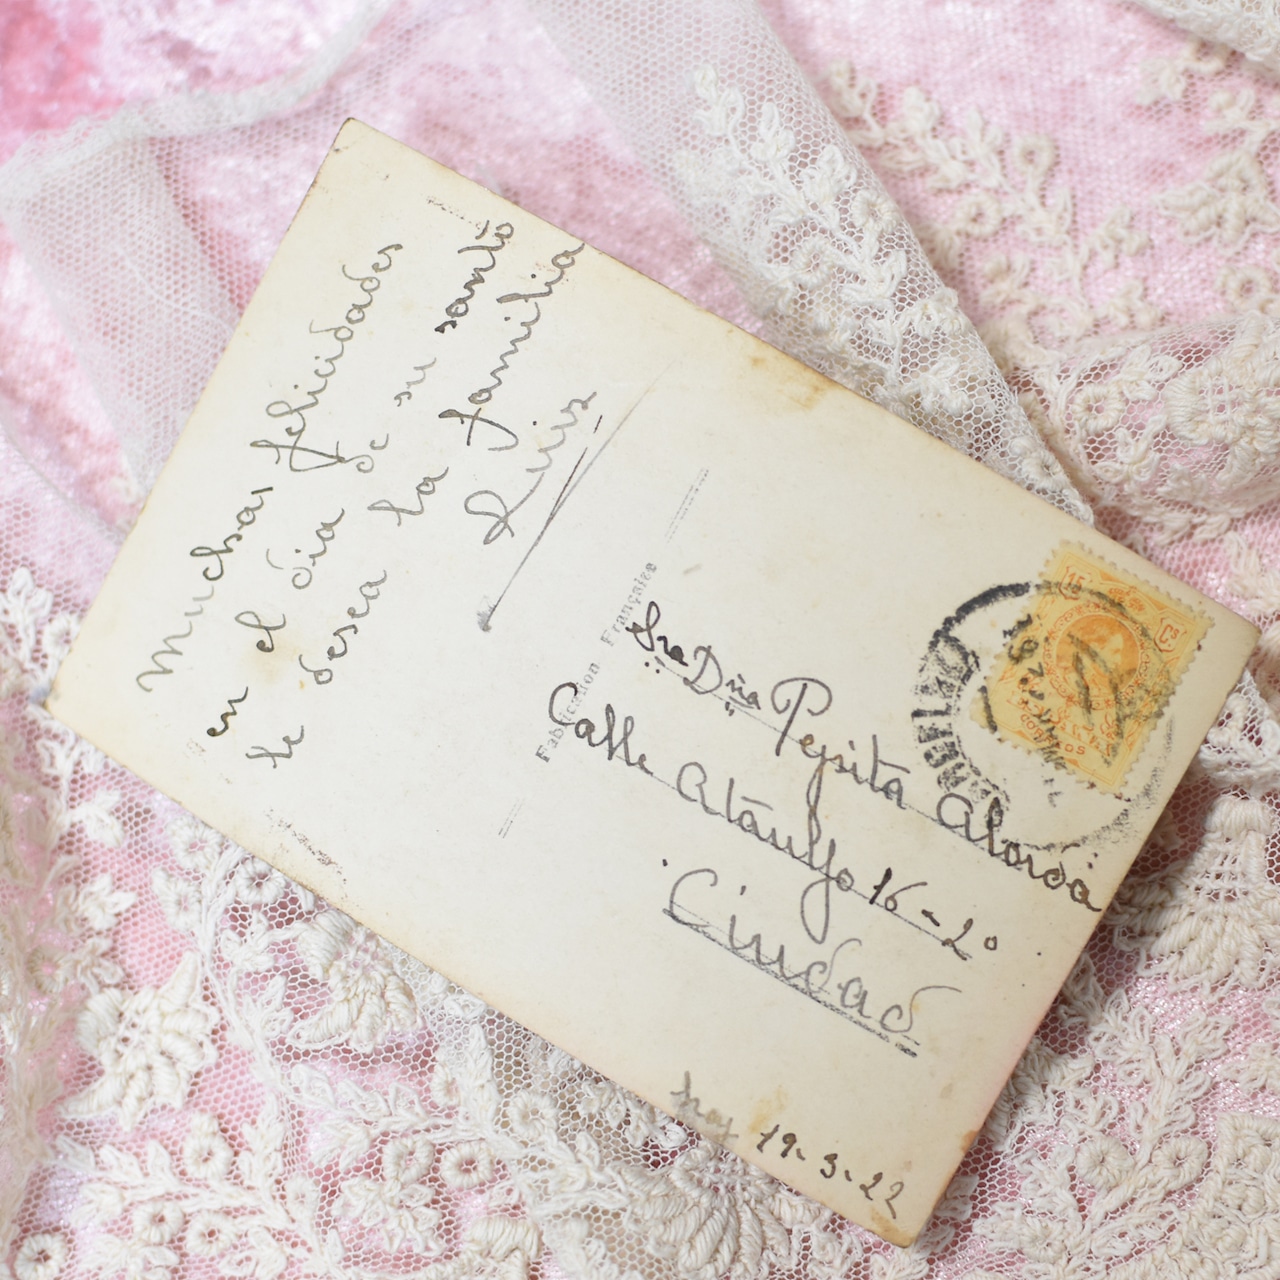 Muchas felicidades
en el dia de su santo
te desea la familia
Luis
Fabrication Française
Sra Dña Pepita Alorda
Calle Ataulfo 16-2º
Ciudad
19-3-22
15 Cs
CORREOS